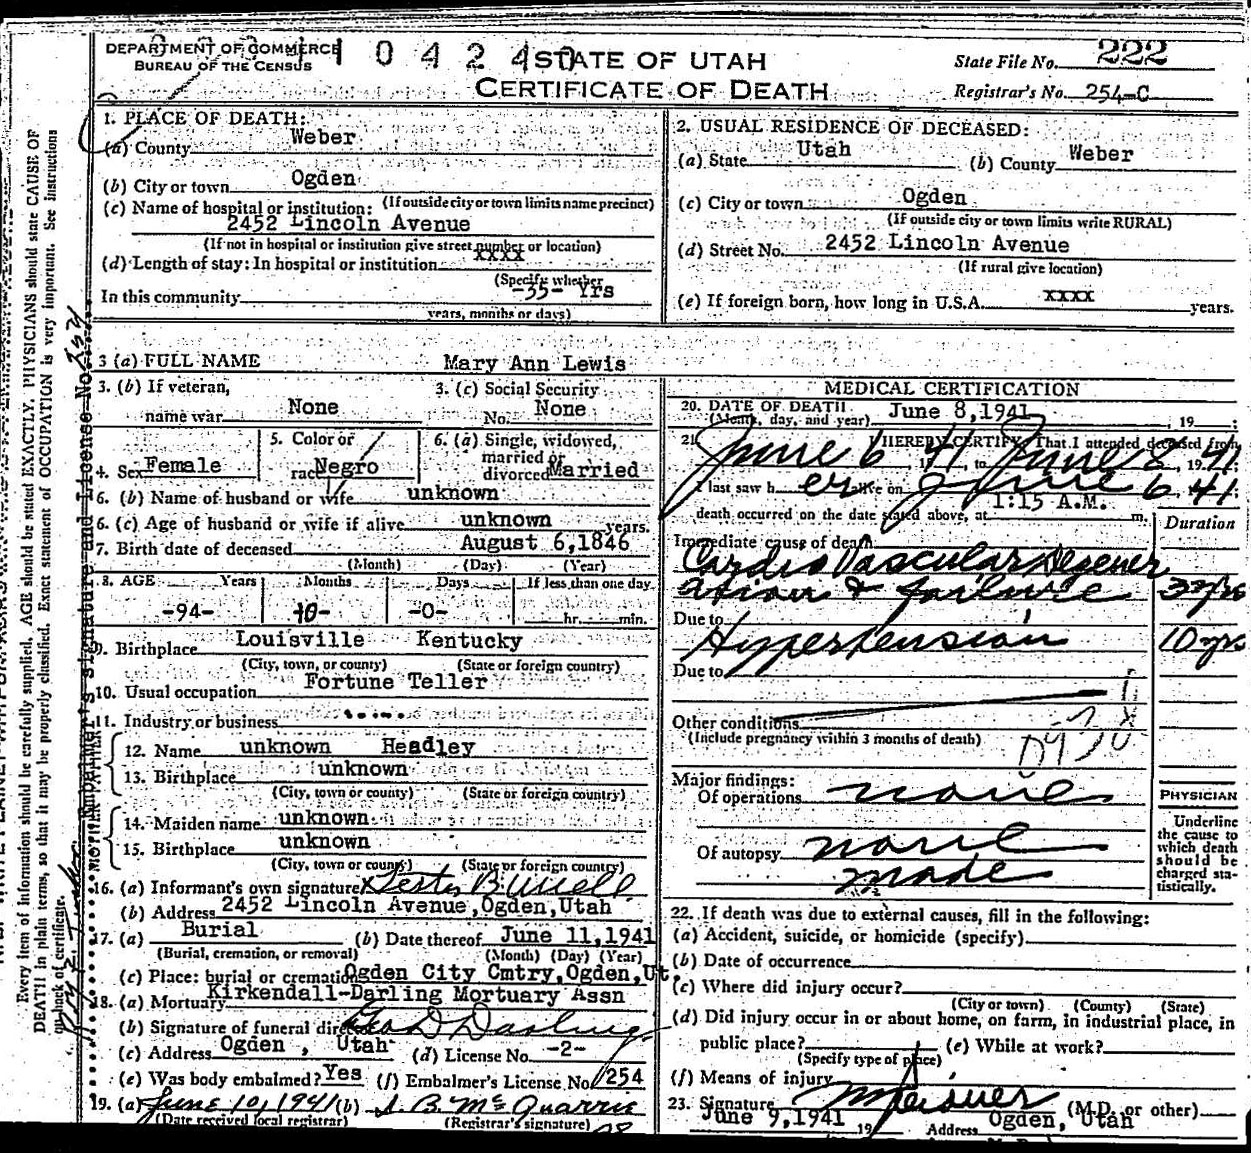 DEPARTMENT OF COMMERCE
BUREAU OF THE CENSUS
1 0 4 2 4
STATE OF UTAH
CERTIFICATE OF DEATH
State File No. 222
Registrar's No. 254-C
1. PLACE OF DEATH:
(a) County Weber
(b) City or town Ogden
(If outside city or town limits name precinct)
(c) Name of hospital or institution:
2452 Lincoln Avenue
(If not in hospital or institution give street number or location)
(d) Length of stay: In hospital or institution xxxx
(Specify whether
In this community -55- Yrs
years, months or days)
2. USUAL RESIDENCE OF DECEASED:
(a) State Utah (b) County Weber
(c) City or town Ogden
(If outside city or town limits write RURAL)
(d) Street No. 2452 Lincoln Avenue
(If rural give location)
(e) If foreign born, how long in U.S.A. xxxx years.
3 (a) FULL NAME Mary Ann Lewis
3. (b) If veteran, name war None
3. (c) Social Security No. None
4. Sex Female
5. Color or race Negro
6. (a) Single, widowed, married or divorced Married
6. (b) Name of husband or wife unknown
6. (c) Age of husband or wife if alive unknown years.
7. Birth date of deceased August 6,1846
(Month) (Day) (Year)
8. AGE Years Months Days If less than one day
-94- 10- -0- hr. min.
9. Birthplace Louisville Kentucky
(City, town, or county) (State or foreign country)
10. Usual occupation Fortune Teller
11. Industry or business
12. Name unknown Headley
13. Birthplace unknown
(City, town or county) (State or foreign country)
14. Maiden name unknown
15. Birthplace unknown
(City, town or county) (State or foreign country)
16. (a) Informant's own signature x Lester B.
(b) Address 2452 Lincoln Avenue,Ogden,Utah
17. (a) Burial (b) Date thereof June 11,1941
(Burial, cremation, or removal) (Month) (Day) (Year)
(c) Place: burial or cremation Ogden City Cmtry,Ogden,Ut.
18. (a) Mortuary Kirkendall-Darling Mortuary Assn
(b) Signature of funeral director Geo D Darling
(c) Address Ogden , Utah (d) License No. -2-
(e) Was body embalmed? Yes (f) Embalmer's License No. 254
19. (a) June 10, 1941 (b) B. McQuarrie
(Date received local registrar) (Registrar's signature)
MEDICAL CERTIFICATION
20. DATE OF DEATH June 8,1941
(Month, day, and year) , 19 ;
21. I HEREBY CERTIFY, That I attended deceased from
June 6 1941, to June 8, 1941;
I last saw her alive on June 6 1941;
death occurred on the date stated above, at 1:15 A.M. m.
Duration
Immediate cause of death
Cardio Vascular Degener
ation & failure 3 yrs
Due to
Hypertension 10 yrs
Due to
Other conditions
(Include pregnancy within 3 months of death)
Major findings:
Of operations none
Of autopsy none
made
PHYSICIAN
Underline
the cause to
which death
should be
charged sta-
tistically.
22. If death was due to external causes, fill in the following:
(a) Accident, suicide, or homicide (specify)
(b) Date of occurrence
(c) Where did injury occur?
(City or town) (County) (State)
(d) Did injury occur in or about home, on farm, in industrial place, in
public place? (e) While at work?
(Specify type of place)
(f) Means of injury
23. Signature (M.D. or other)
June 9,1941 19 Address Ogden, Utah
Every item of information should be carefully supplied. AGE should be stated EXACTLY. PHYSICIANS should state CAUSE OF
DEATH in plain terms, so that it may be properly classified. Exact statement of OCCUPATION is very important. See instructions
on back of certificate.
Embalmer's signature and License No. 254